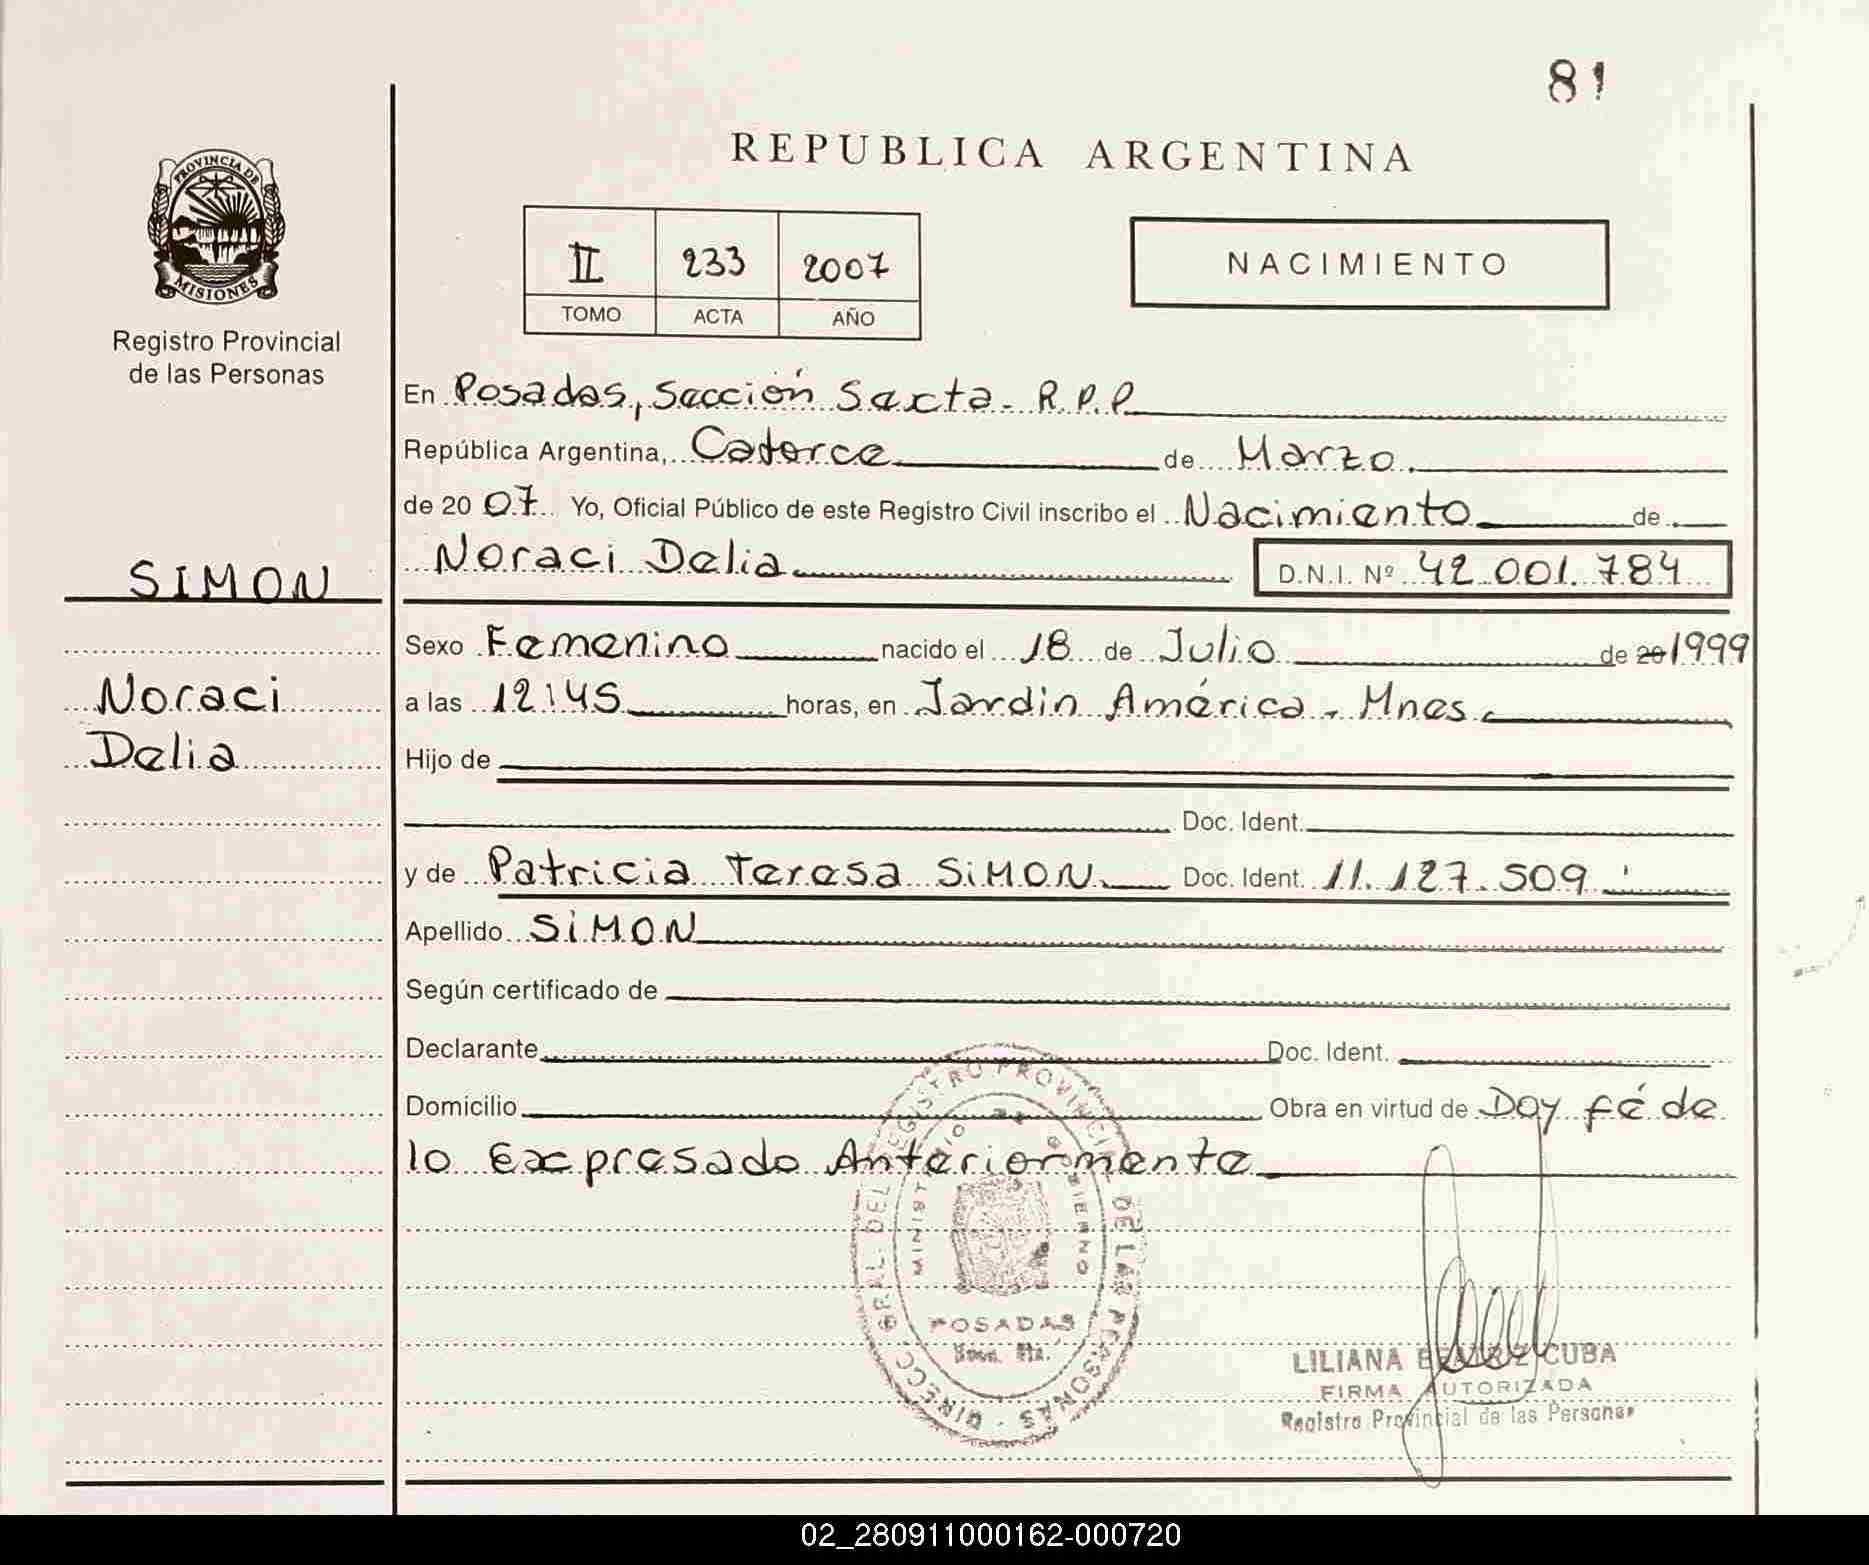 81
REPUBLICA ARGENTINA
PROVINCIA DE
MISIONES
Registro Provincial
de las Personas
II 233 2007
TOMO ACTA AÑO
NACIMIENTO
En Posadas, Sección Sexta - R.P.P.
República Argentina, Catorce de Marzo
de 20 07 Yo, Oficial Público de este Registro Civil inscribo el Nacimiento de
Noraci Delia D.N.I. Nº 42.001.784
SIMON
Noraci
Delia
Sexo Femenino nacido el 18 de Julio de 20 1999
a las 12:45 horas, en Jardin América - Mnes
Hijo de
Doc. Ident.
y de Patricia Teresa SiMON Doc. Ident. 11.127.509
Apellido SiMON
Según certificado de
Declarante Doc. Ident.
Domicilio Obra en virtud de Doy fé de
lo Expresado Anteriormente
DIRECC GRAL DEL REGISTRO PROVINCIAL DE LAS PERSONAS
MINISTERIO DE GOBIERNO
POSADAS
LILIANA BEATRIZ CUBA
FIRMA AUTORIZADA
Registro Provincial de las Personas
02_280911000162-000720